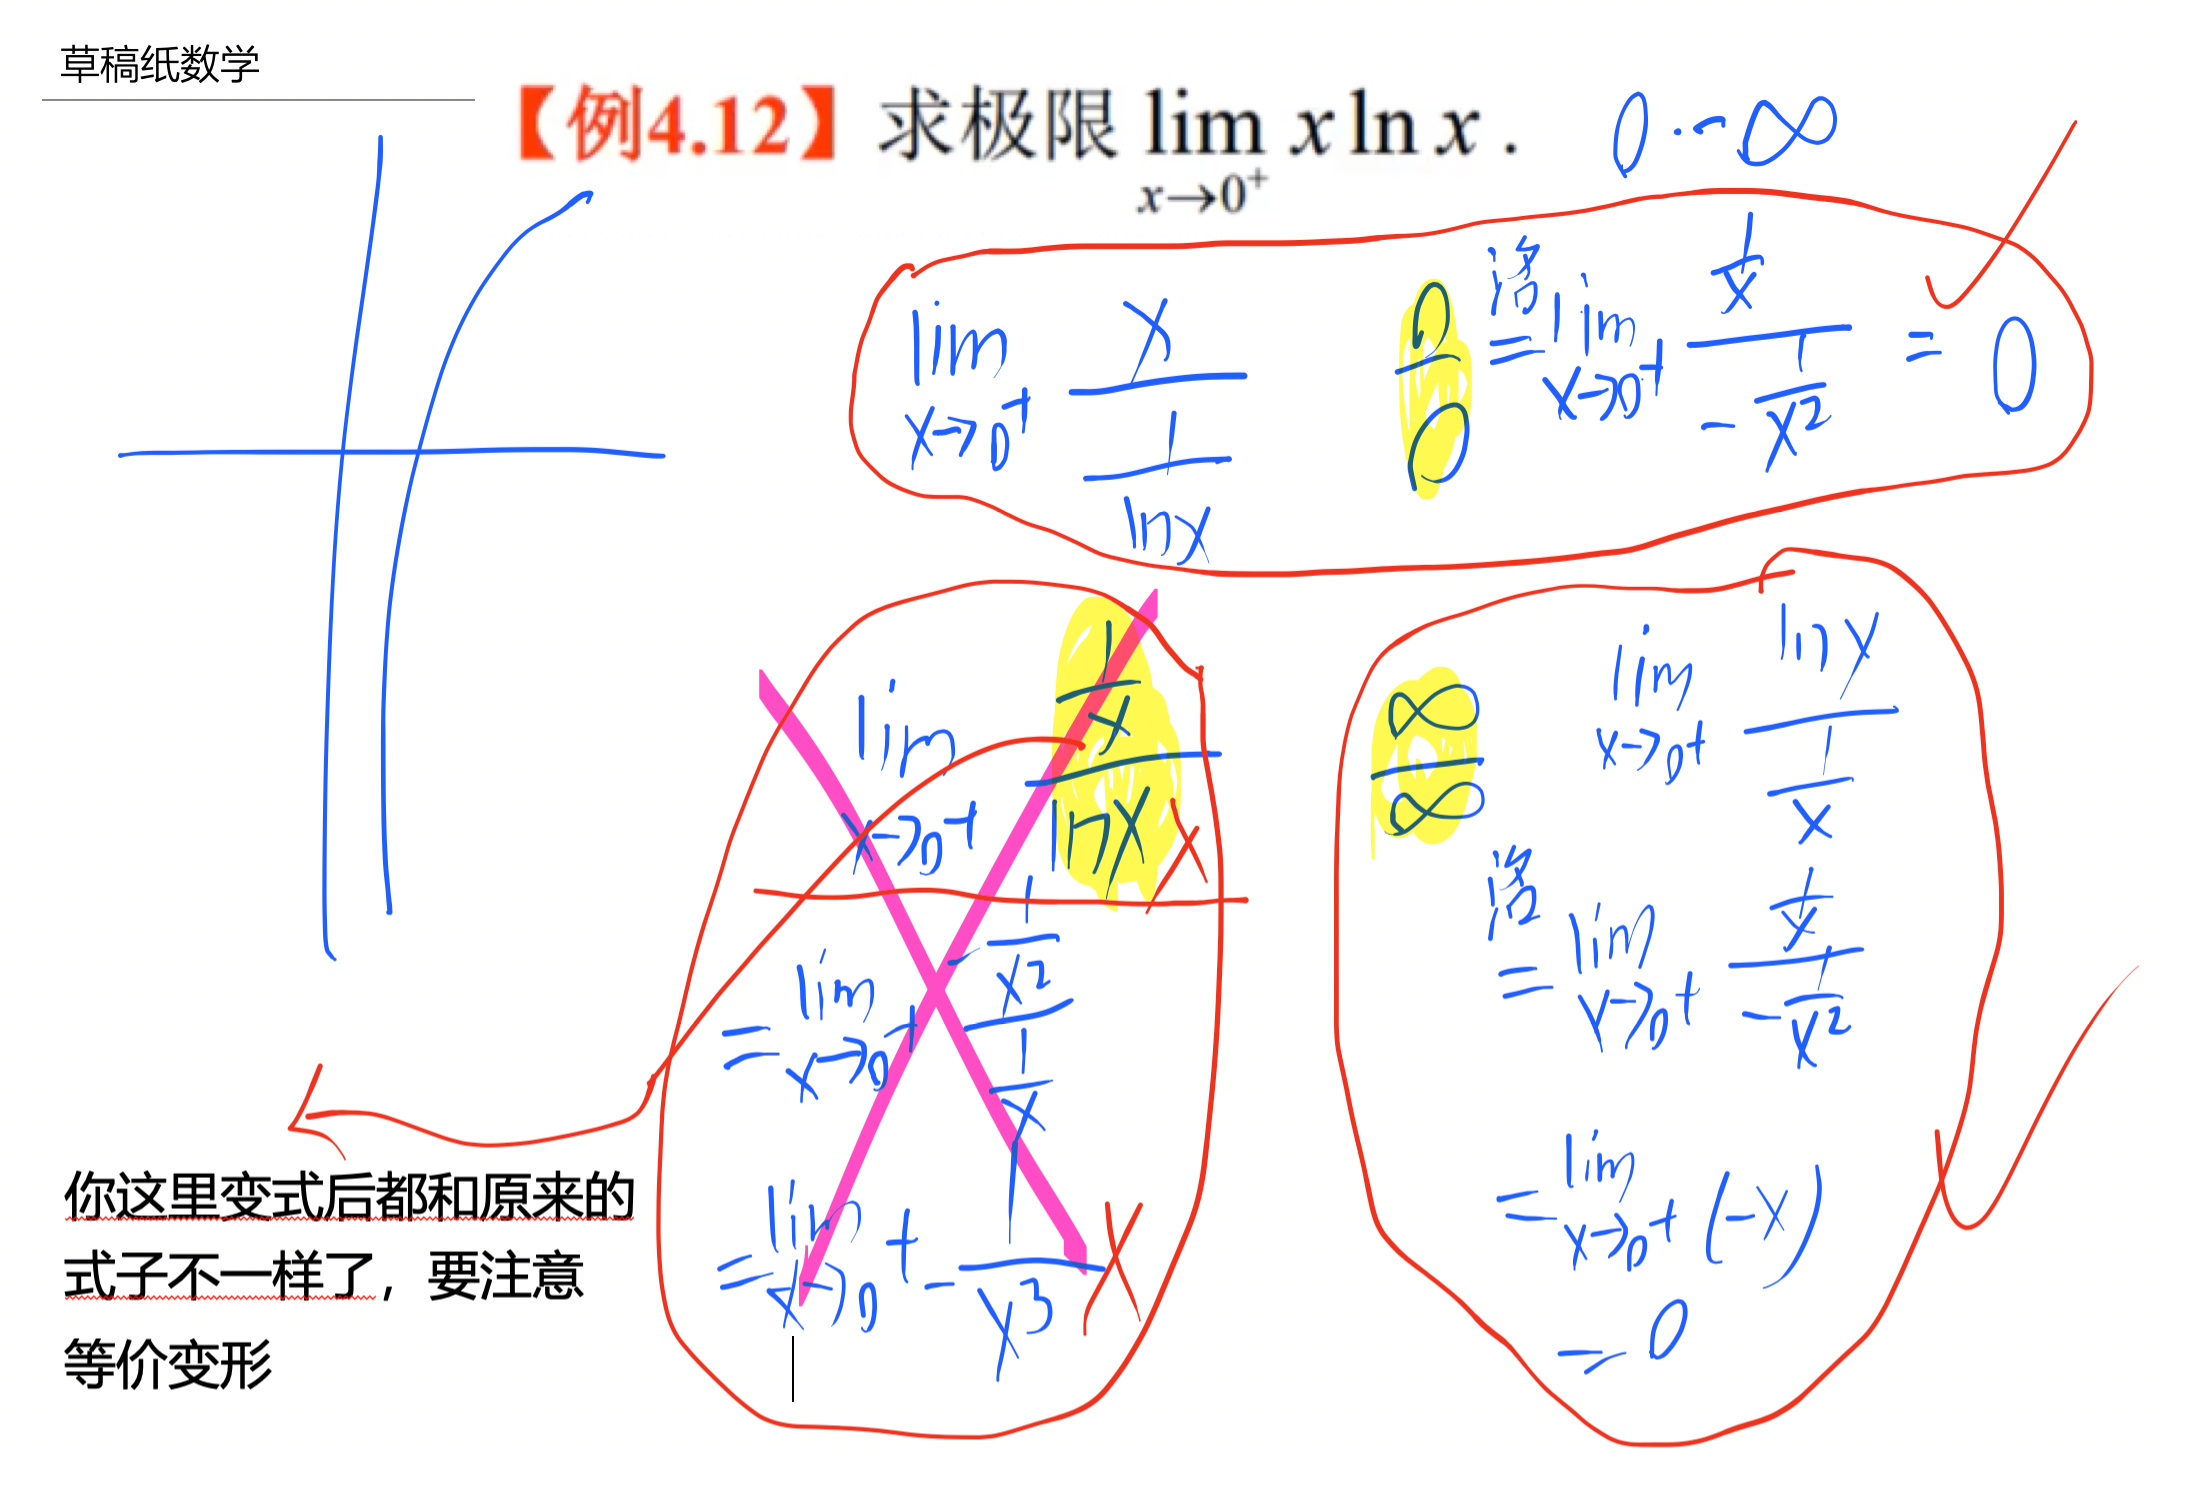 草稿纸数学
【例4.12】求极限 lim x ln x .
x→0⁺
0·-∞
lim x→0⁺ x/(1/ln x) 0/0 洛= lim x→0⁺ (1/x)/(-1/x²) = 0
lim x→0⁺ (1/x)/ln x ×
= lim x→0⁺ (-1/x²)/(1/x)
= lim x→0⁺ -1/x³ ×
∞/∞ lim x→0⁺ ln x/(1/x)
洛= lim x→0⁺ (1/x)/(-1/x²)
= lim x→0⁺ (-x)
= 0
你这里变式后都和原来的
式子不一样了，要注意
等价变形